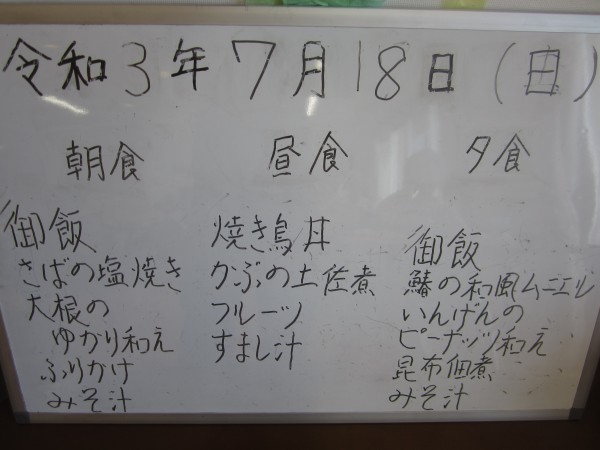 令和3年7月18日(日)
朝食
御飯
さばの塩焼き
大根の
ゆかり和え
ふりかけ
みそ汁
昼食
焼き鳥丼
かぶの土佐煮
フルーツ
すまし汁
夕食
御飯
鰆の和風ムニエル
いんげんの
ピーナッツ和え
昆布佃煮
みそ汁